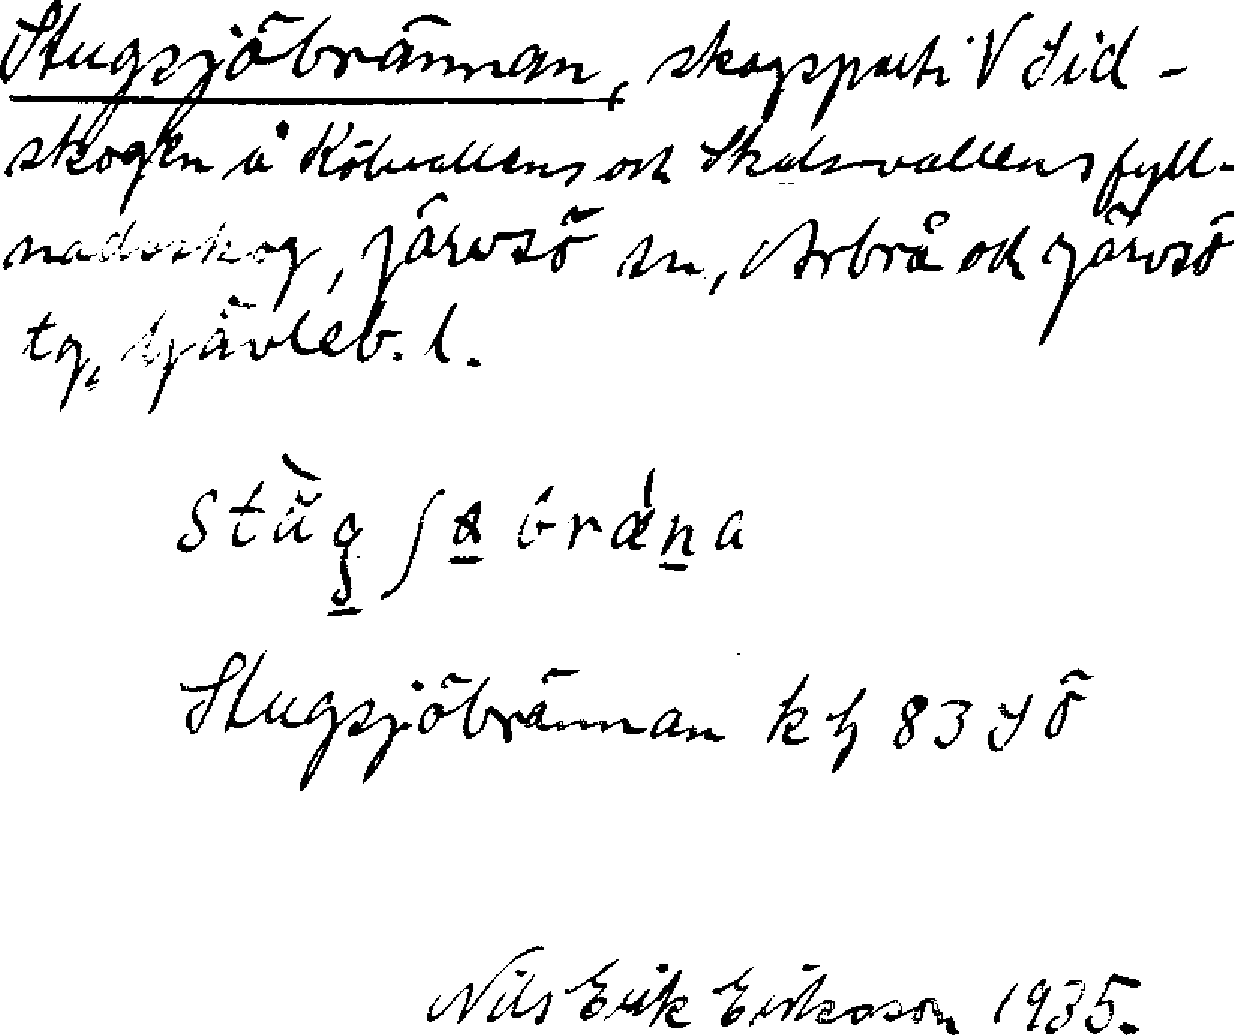 Stugsjöbrännan, skogsparti V Sid-
skogen å Kölvallens och Skålsvallens fyll-
nadsskog, Järvsö sn, Arbrå och Järvsö
tg, Gävleb. l.
Stugsjöbrännan kh 83 JÖ
Nils Erik Eriksson 1935.